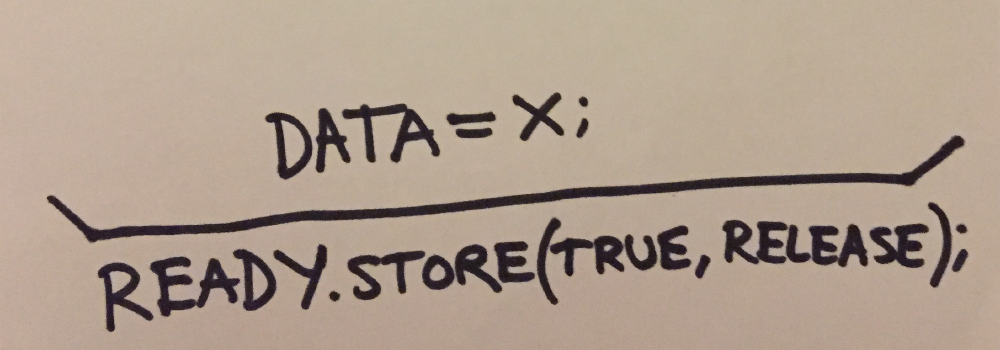 DATA = X;
READY.STORE(TRUE, RELEASE);